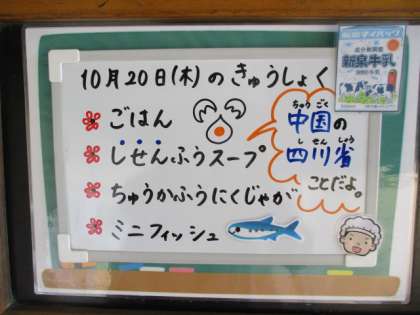 10月20日(木)のきゅうしょく
ごはん
しせんふうスープ
ちゅうかふうにくじゃが
ミニフィッシュ
ちゅうごく
中国の
しせんしょう
四川省
ことだよ。
新泉牛乳